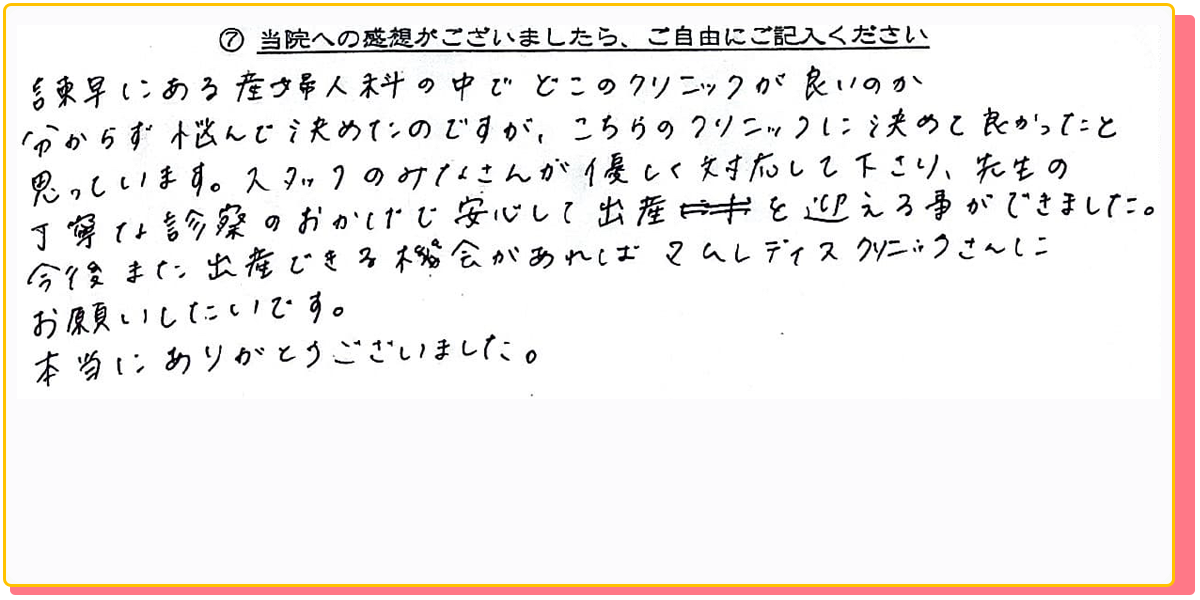 ⑦ 当院への感想がございましたら、ご自由にご記入ください
諫早にある産婦人科の中でどこのクリニックが良いのか
分からず悩んで決めたのですが、こちらのクリニックに決めて良かったと
思っています。スタッフのみなさんが優しく対応して下さり、先生の
丁寧な診察のおかげで安心して出産を迎える事ができました。
今後また出産できる機会があればマムレディスクリニックさんに
お願いしたいです。
本当にありがとうございました。